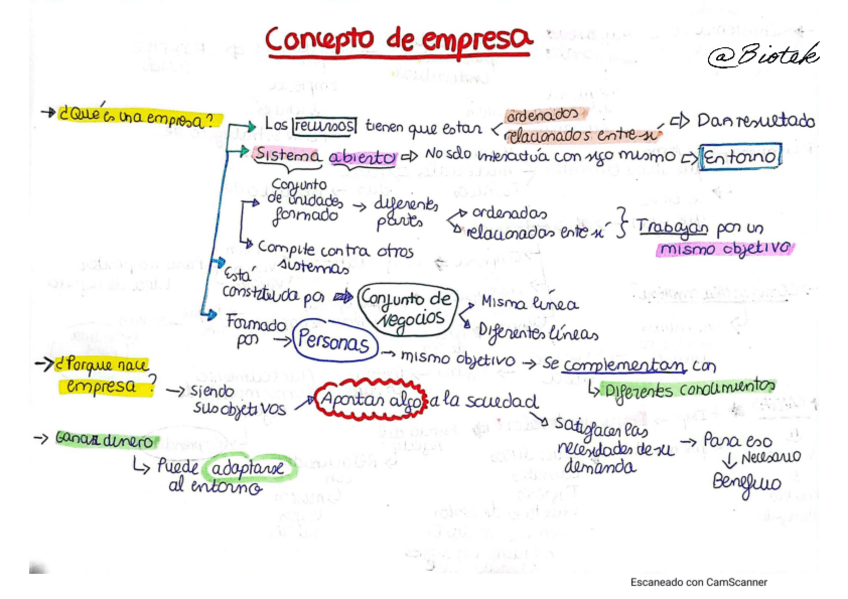 Concepto de empresa
@Biotek
→ ¿Qué es una empresa?
→ Los recursos tienen que estar < ordenados
relacionados entre sí ⇒ Dan resultado
→ Sistema abierto ⇒ No solo interactúa con sigo mismo ⇒ Entorno
Conjunto
de unidades
formado → diferentes
partes < ordenadas
relacionadas entre sí } Trabajan por un
mismo objetivo
→ Compite contra otros
sistemas
Está
constituida por ⇒ Conjunto de
Negocios
Misma línea
Diferentes líneas
Formado
por → Personas → mismo objetivo → Se complementan con
↳ Diferentes conocimientos
→ ¿Porque nace
empresa? → Siendo
sus objetivos → Aportar algo a la sociedad
Satisfacer las
necesidades de su
demanda → Para eso
↓ Necesario
Beneficio
→ Ganar dinero
↳ Puede adaptarse
al entorno
Escaneado con CamScanner